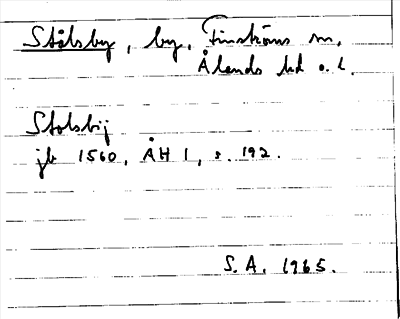 Stålsby, by, Finströms sn,
Ålands hd o. L.
Stolsbij
jb 1560, ÅH 1, s. 192.
S.A. 1965.